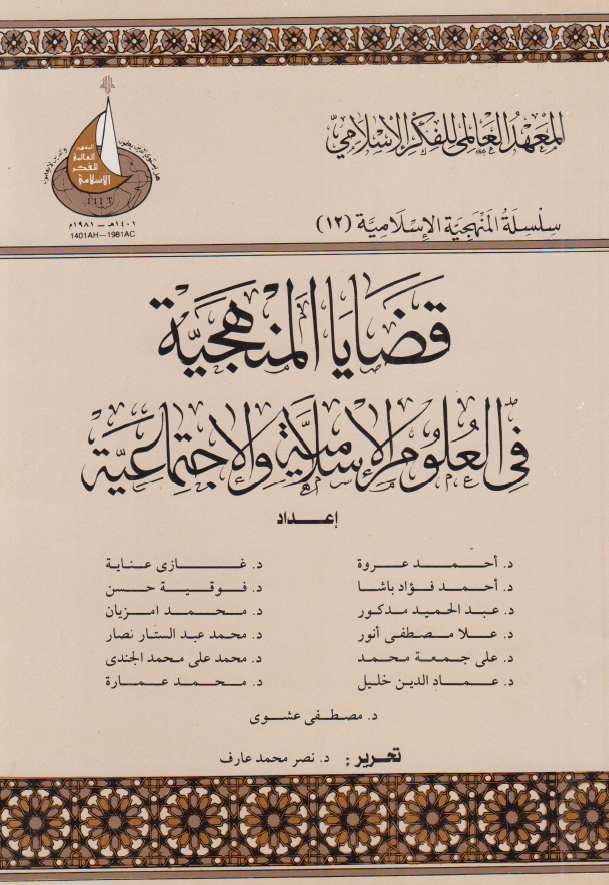 المعهد العالمي للفكر الإسلامي
المعهد
العالمى
للفكر
الإسلامى
IIIT
١٤٠١هـ – ١٩٨١م
1401AH—1981AC
سلسلة المنهجية الإسلامية (١٢)
قضايا المنهجية
في العلوم الإسلامية والاجتماعية
إعداد
د. أحمد عروة
د. أحمد فؤاد باشا
د. عبد الحميد مدكور
د. علا مصطفى أنور
د. على جمعة محمد
د. عماد الدين خليل
د. غازى عناية
د. فوقية حسن
د. محمد امزيان
د. محمد عبد الستار نصار
د. محمد على محمد الجندى
د. محمد عمارة
د. مصطفى عشوى
تحرير : د. نصر محمد عارف